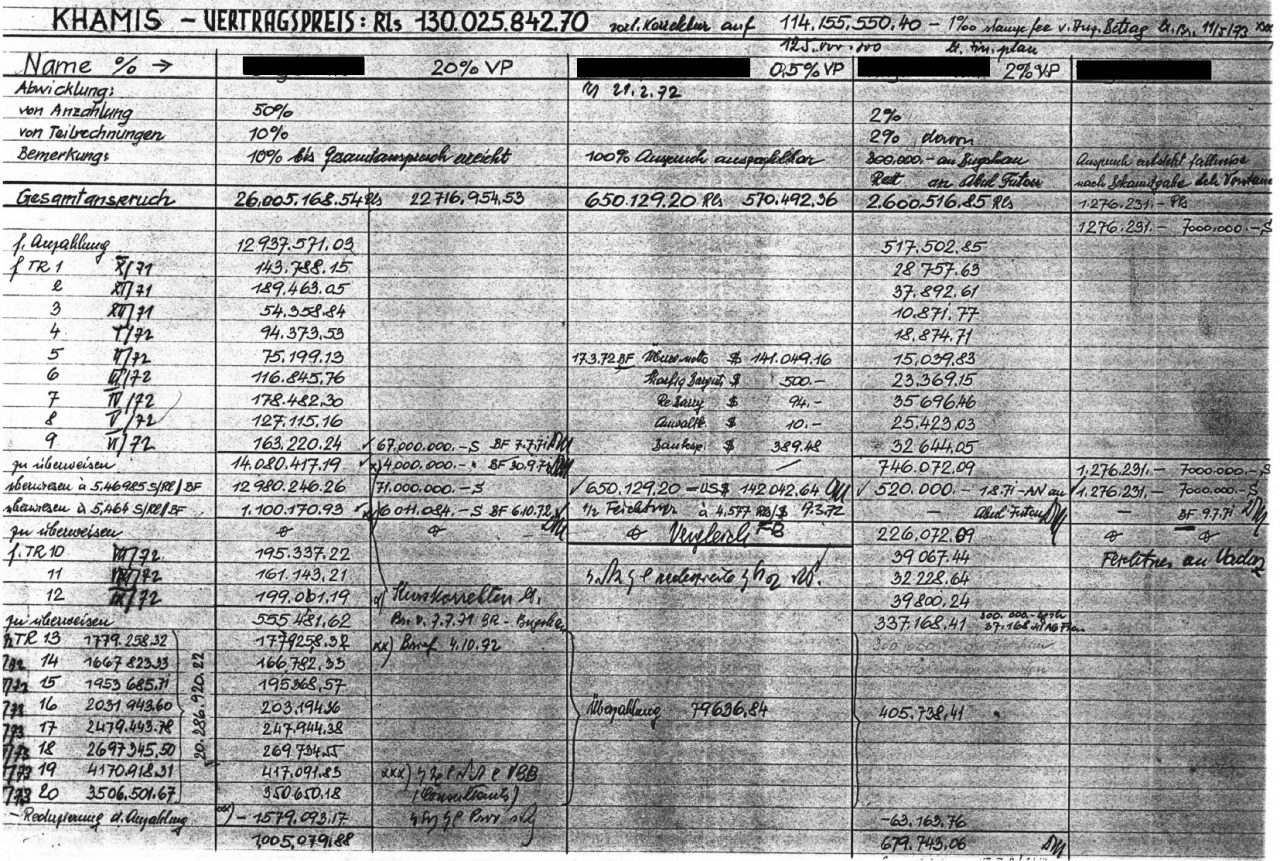 KHAMIS – VERTRAGSPREIS: Rls 130.025.842.70 auf 114.155.550.40 – 1‰ fee v. Betrag 11/5/73 xxx
125.000.000 lt. fin. plan
Name % → 20% VP 0,5% VP 2% VP
Abwicklung: 21.2.72
von Anzahlung 50% 2%
von Teilrechnungen 10% 2% davon
Bemerkung: 10% bis Gesamtanspruch erreicht 100% Anspruch auszahlbar 300.000.- an Bugshan Anspruch entsteht fallweise
Rest an Abul Futou nach Bekanntgabe
Gesamtanspruch 26.005.168.54 Rls 22716,954.53 650.129.20 Rls 570.492.36 2.600.516.85 Rls 1.276.231.- Rls
1276.231.- 7000.000.-S
f. Anzahlung 12937.571.03 517.502.85
f TR 1 X/71 143.788.15 28 757.63
2 XI/71 189.463.05 37.892.61
3 XII/71 54.358.84 10.871.77
4 I/72 94.373.53 18.874.71
5 II/72 75.199.13 17.3.72 BF $ 141.049.16 15.039.83
6 III/72 116.845.76 $ 500.- 23.369.15
7 IV/72 178.482.30 $ 94.- 35 696.46
8 V/72 127.115.16 Anwalt $ 10.- 25.423.03
9 VI/72 163.220.24 ✓ 67,000.000.-S BF 7.7.71 Banksp. $ 389.48 32 644.05
zu überweisen 14.080.417.19 ✓ x) 4,000.000.- " BF 30.9.71 746.072.09 1,276.231.- 7000.000.-S
überwiesen à 5,46985 S/Rl/BF 12 980.246.26 71.000.000.-S ✓ 650.129.20 = US$ 142 042.64 ✓ 520.000.- 18.71-AN an ✓ 1.276.231.- 7000.000.-S
überwiesen à 5,464 S/Rl/BF 1.100.170.93 6 011.084.-S BF 6.10.72 Feichtner à 4,577 Rls/$ 9.3.72 – Abul Futou – BF 9.7.71
zu überweisen Vergleich FB 226,072.09
f. TR 10 VII/72 195.337.22 39 067.44 Feichtner an Vaduz
11 VIII/72 161.143.21 32 228.64
12 IX/72 199.001.19 Kurskorrektur lt. 39800.24
zu überweisen 555 481.62 Br. v. 7.7.71 BR - Bugshan 337.168.41 300.000.- 37.168.41
TR 13 1779.258.32 177925.32 xx) Brief 4.10.92
14 1667 823.33 166 782.33
15 1953 685.71 195368,57
16 2031 943.60 203.194.36 Überzahlung 79636,84 405.738.41
17 2479.443.78 247.944.38
18 2697345.50 269 734.55
19 4170.918.31 417.091.83 xxx)
20 3506.501.67 350 650.18 (Consultants)
20.286.920.22
– Reduzierung d. Anzahlung xxx) – 1579.093.17 –63.163.76
1005,079.88 679.743.06